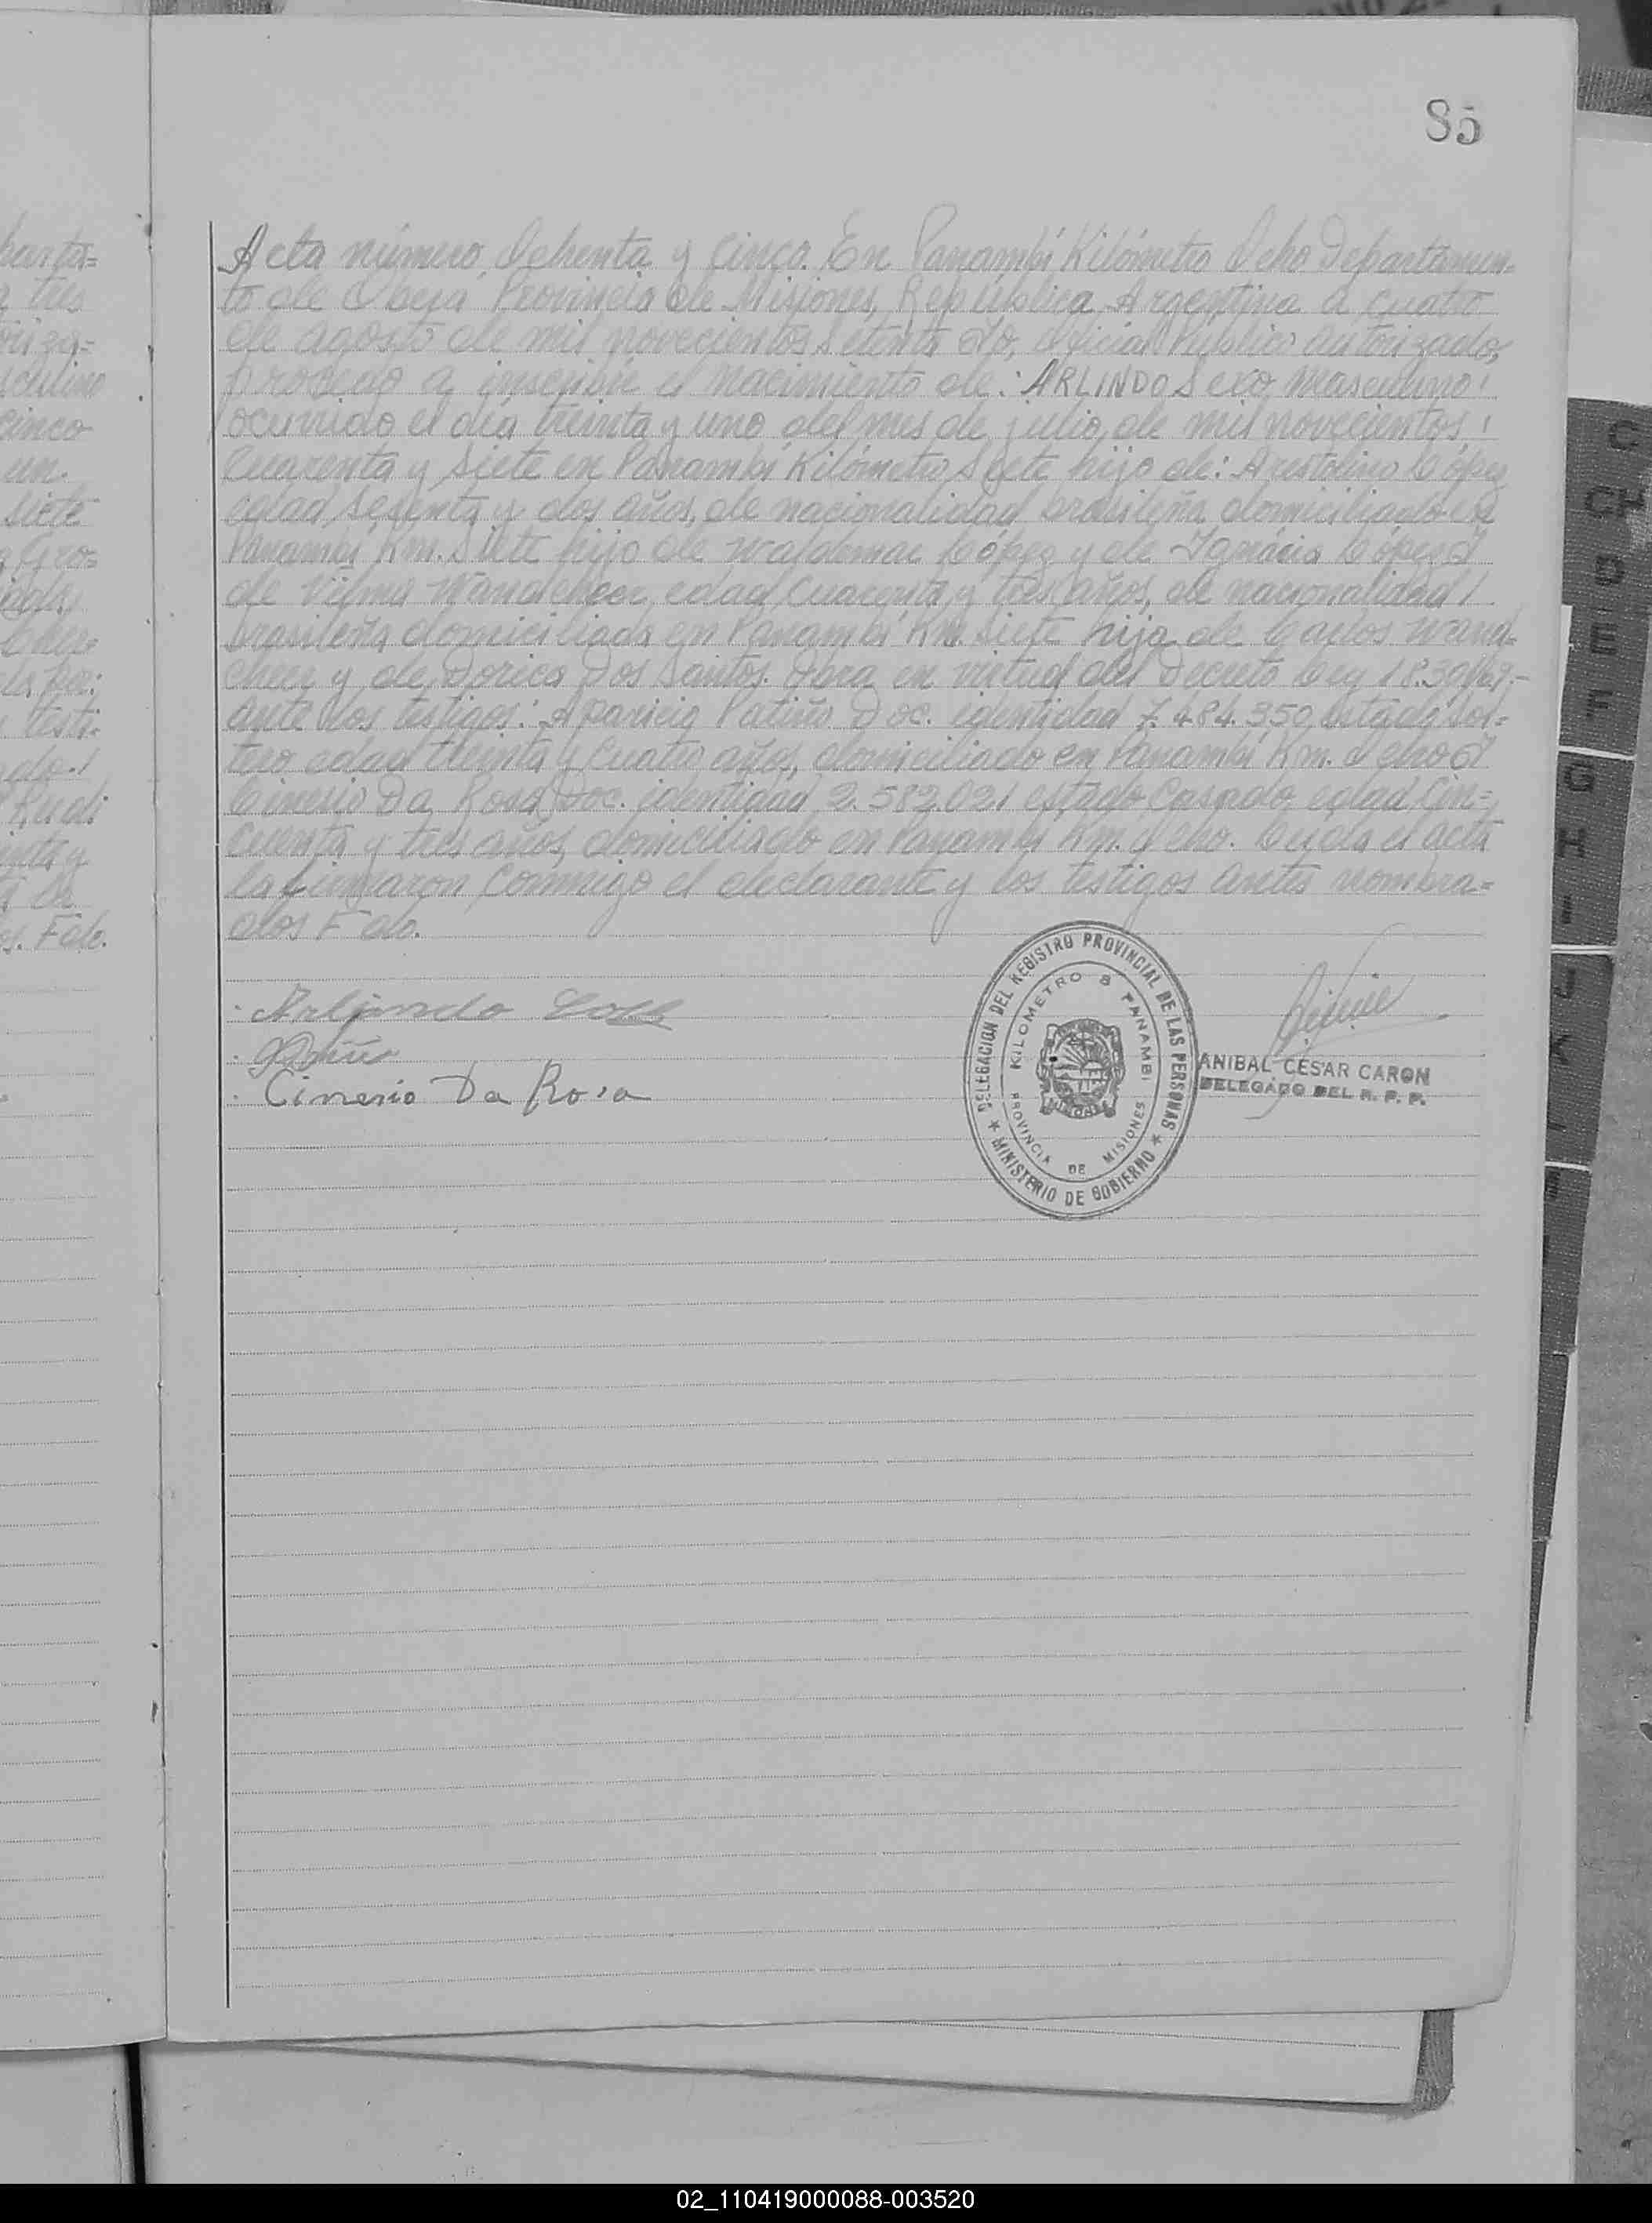 85
Acta número Ochenta y Cinco. En Panambí Kilómetro Ocho Departamen=
to de Oberá Provincia de Misiones, República Argentina a cuatro
de agosto de mil novecientos Setenta Yo, Oficial Público autorizado,
procedo a inscribir el nacimiento de: ARLINDO Sexo Masculino
ocurrido el día treinta y uno del mes de julio, de mil novecientos
Cuarenta y Siete en Panambí Kilómetro Siete hijo de: Aristolino López
edad Sesenta y dos años, de nacionalidad brasileña domiciliado en
Panambí Km. Siete hijo de Waldemar López y de Ignácia López Y
de Vilma Wandcheer, edad Cuarenta y tres años, de nacionalidad
brasileña domiciliada en Panambí Km. Siete hija de Carlos Wand=
cheer y de Dorica Dos Santos. Obra en virtud del Decreto Ley 18.309/69.-
ante los testigos: Aparicio Patiño Doc. identidad 7.484.350, estado Sol=
tero edad treinta y Cuatro años, domiciliado en Panambí Km. Ocho Y
Cinesio Da Rosa Doc. identidad 2.582.021 estado Casado, edad Cin=
cuenta y tres años, domiciliado en Panambí Km. Ocho. Leída el acta
la firmaron Conmigo el declarante y los testigos antes nombra=
dos
Arlindo
Cinesio Da Rosa
DELEGACION DEL REGISTRO PROVINCIAL DE LAS PERSONAS
* MINISTERIO DE GOBIERNO *
KILOMETRO 8 PANAMBI
PROVINCIA DE MISIONES
ANIBAL CÉSAR CARON
DELEGADO DEL R. P. P.
parta=
a tres
oriza=
sculino
cinco
un
siete
testi=
Rudi
C
CH
D
E
F
G
H
I
J
K
02_110419000088-003520